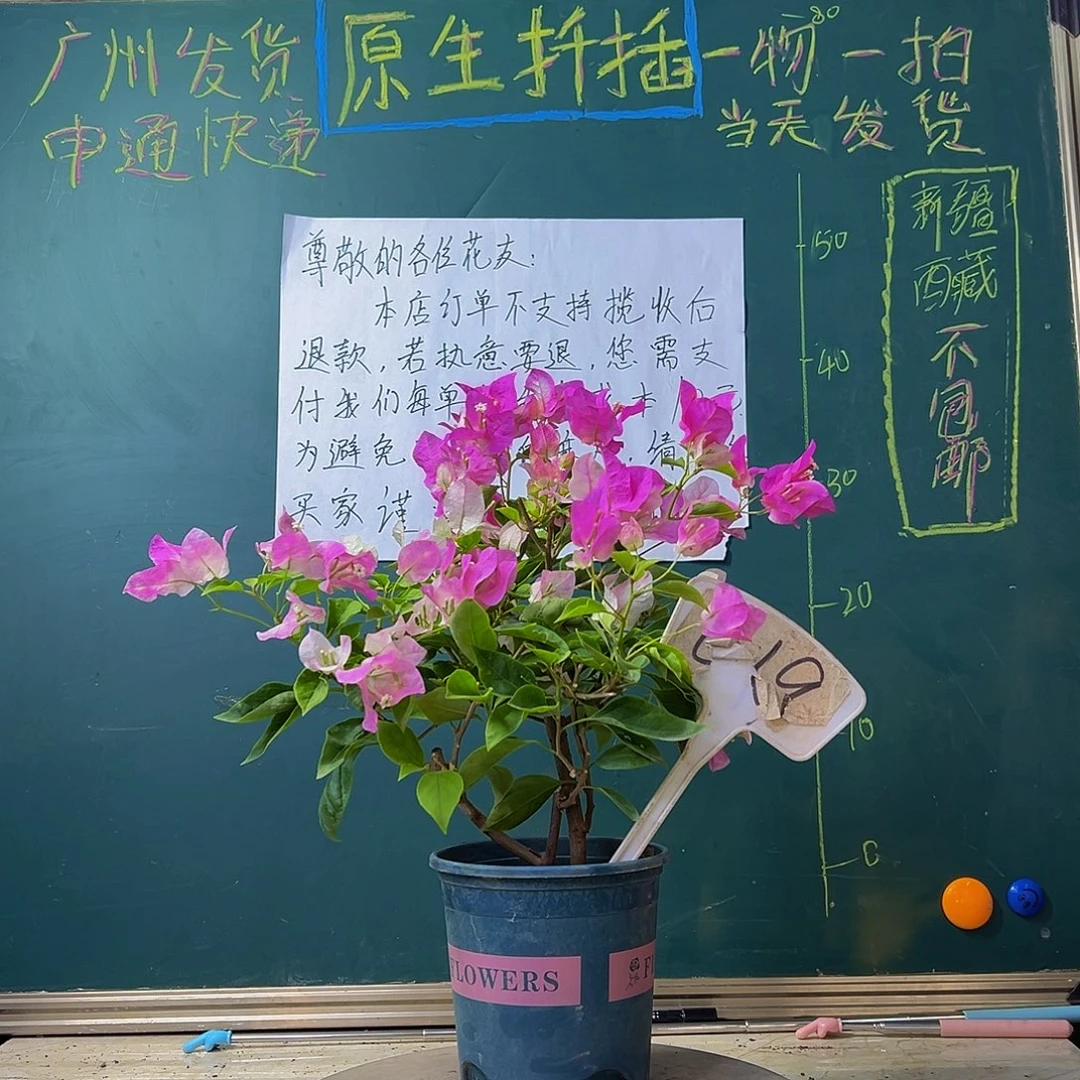 广州发货
原生扦插
一物一拍
申通快递
当天发货
80
新疆
西藏
不包邮
50
40
30
20
10
0
尊敬的各位花友:
本店订单不支持揽收后
退款,若执意要退,您需支
付我们每单
为避免
买家谨
19
FLOWERS